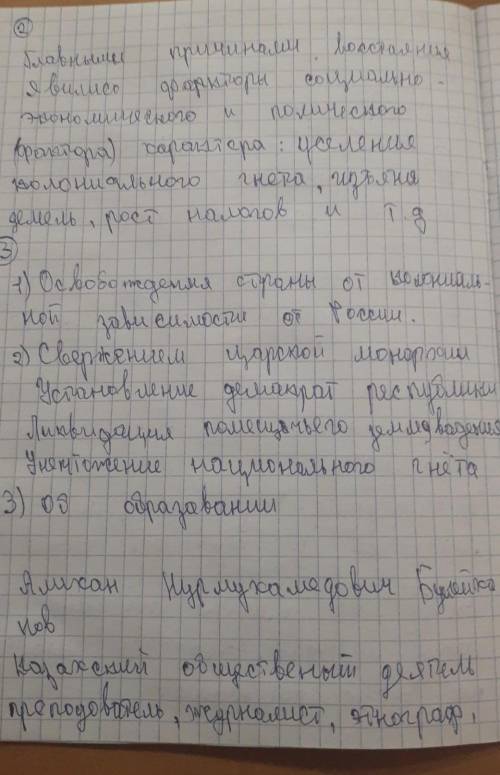 2
Главными причинами восстания
явились факторы социально-
экономического и полического
(фактора) характера: уселения
колониального гнета, изъяна
демель, рост налогов и т.д
3
1) Освобождения страны от колониаль-
ной зависимости от России.
2) Свержением царской монархии
Установление демакрат республики
Ликвидация помещичьего
Уничтожение национального гнёта
3) об образавании
Алихан Нурмухамедович Букейха
нов
Казахский общественый деятель
преподователь, журналист, этнограф,